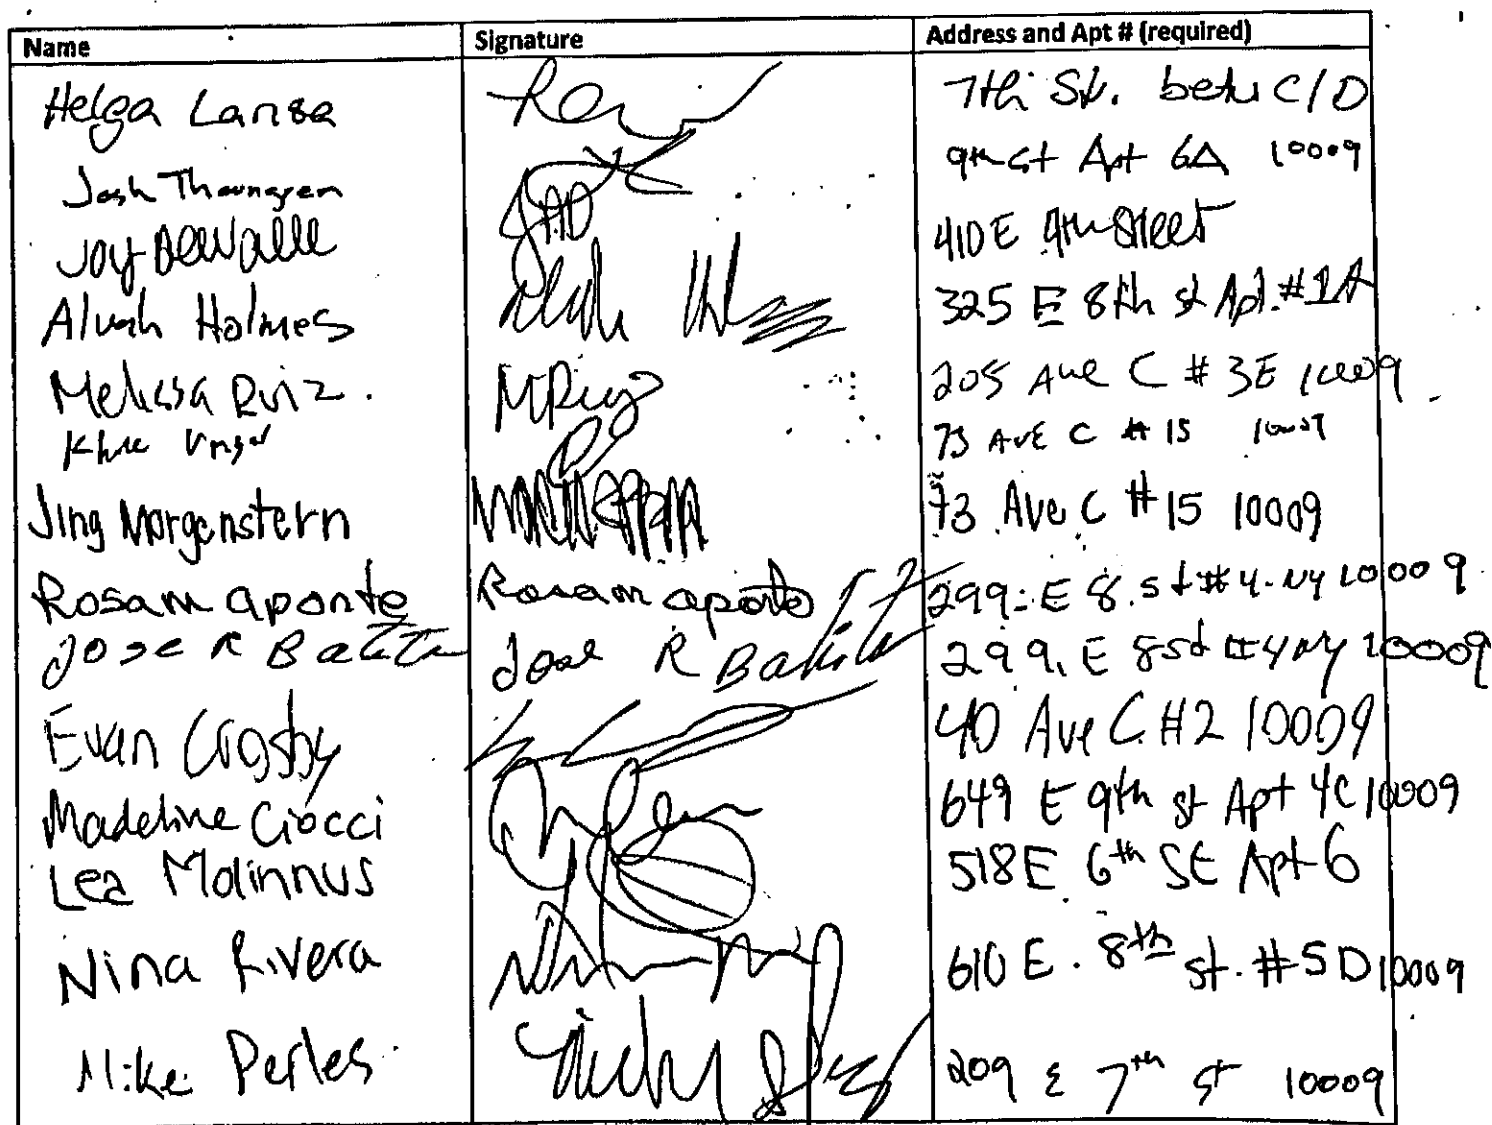 Name Signature Address and Apt # (required)
Helga Lanse 7th St. betw C/D
Josh 9th St Apt 6A 10009
Joy 410 E 9th Street
Alvah Holmes 325 E 8th st Apt. #1A
Melissa Ruiz. MRuiz 205 Ave C #3E 10009
73 AVE C #15 10009
Jing Morgenstern 73 Ave C #15 10009
Rosam aponte Rosam aponte 299-E 8.St #4-NY 10009
Jose R Batista Jose R Batista 299. E 8 St #4 NY 10009
Evan Crosby 40 Ave C #2 10009
Madeline Ciocci 649 E 9th st Apt 4C 10009
Lea Molinnus 518 E 6th St Apt 6
Nina Rivera 610 E. 8th st. #5D 10009
Mike Perles 209 E 7th St 10009